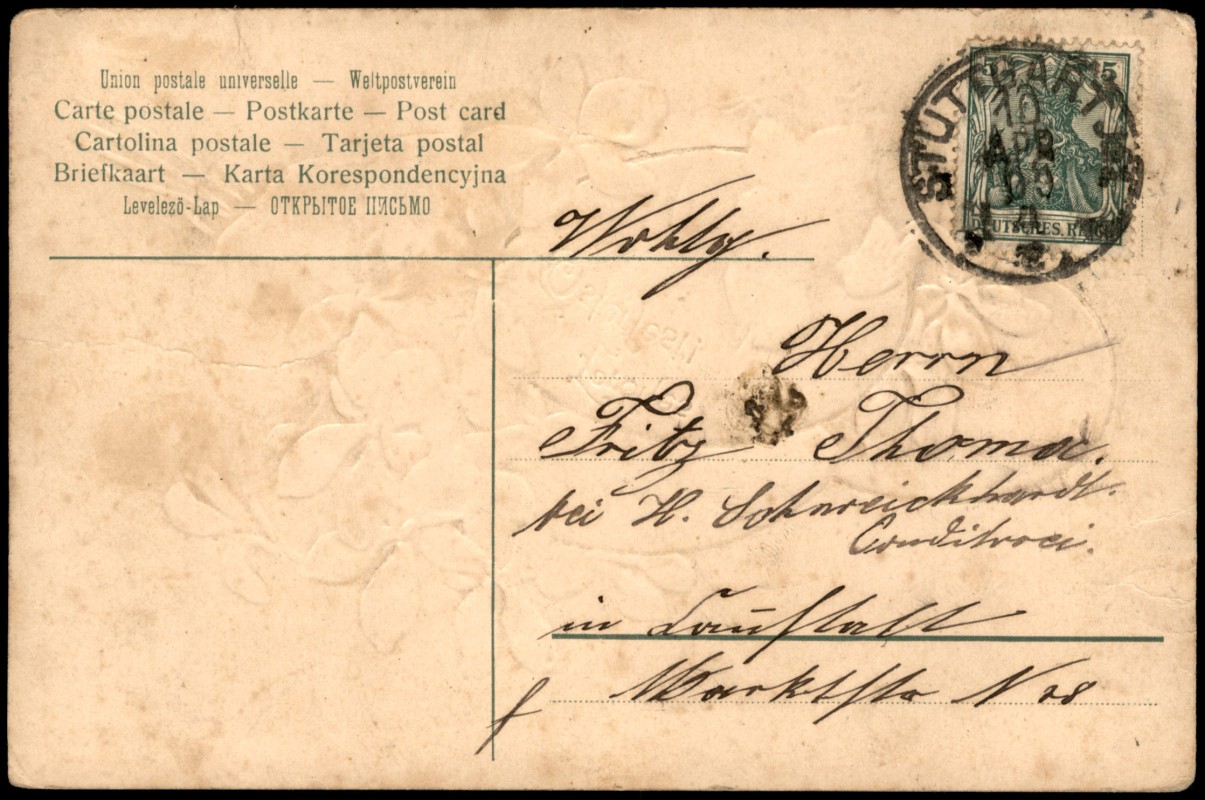 Union postale universelle — Weltpostverein
Carte postale — Postkarte — Post card
Cartolina postale — Tarjeta postal
Briefkaart — Karta Korespondencyjna
Levelező-Lap — ОТКРЫТОЕ ПИСЬМО
STUTTGART
10
APR
09
5 5
DEUTSCHES REICH
Wohlg.
Herrn
Fritz Thoma.
bei H. Schweickhardt.
Conditorei.
in
Marktstr N 28